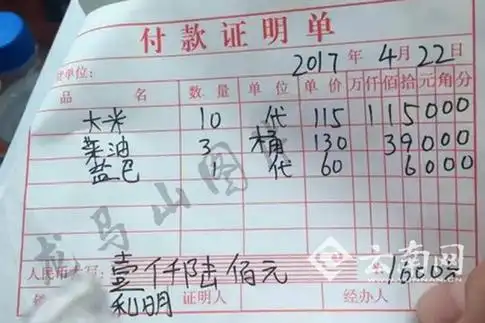 付款证明单
2017 年 4 月 22 日
单位:
品 名 数 量 单 位 单 价 万 仟 佰 拾 元 角 分
大米 10 代 115 1 1 5 0 0 0
菜油 3 桶 130 3 9 0 0 0
盐巴 1 代 60 6 0 0 0
龙马山图
人民币大写: 壹仟陆佰元 1600元
利明 证明人 经办人
云南网